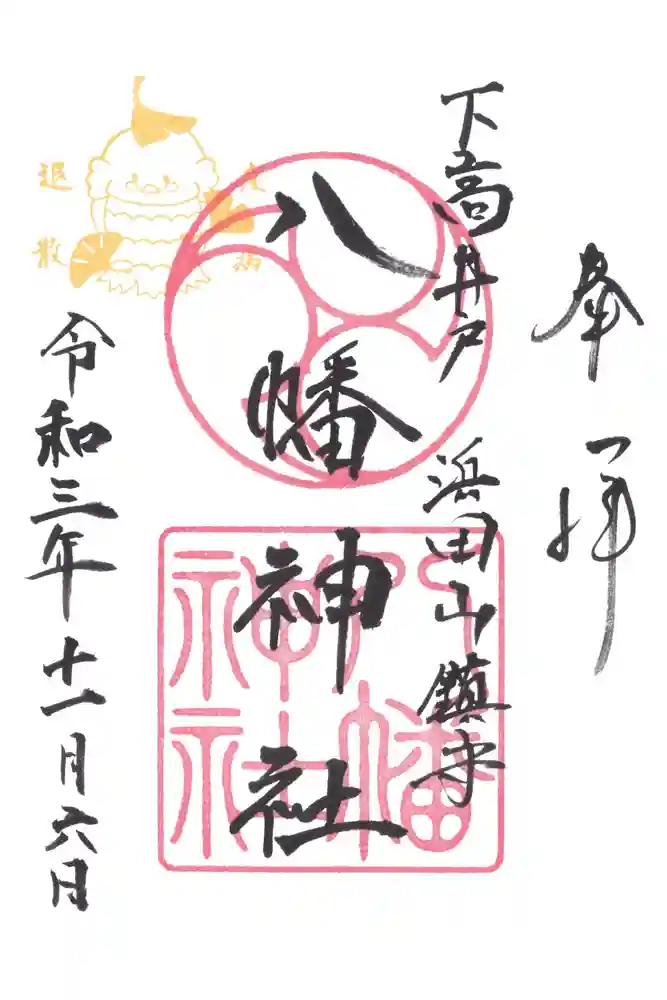 奉拝
下高井戸
浜田山鎮守
八幡神社
令和三年十一月六日
退散
八幡神社